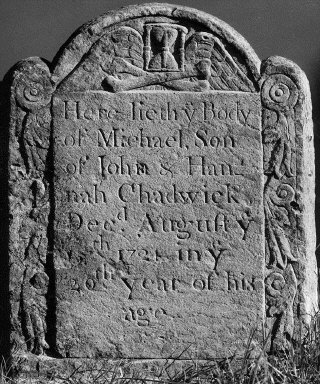 Here lieth ẏ Body
of Michael, Son
of John & Han-
nah Chadwick
Decḍ. August ẏ
th 1721 in ẏ
20th year of his
age